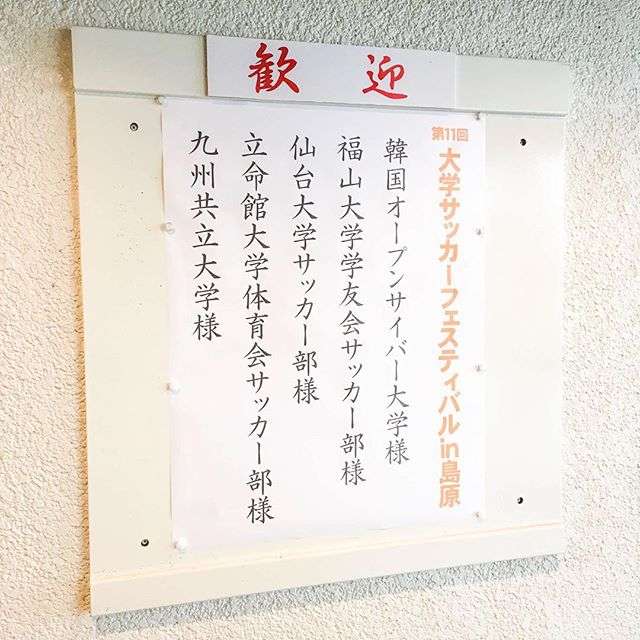 歓迎
第11回
大学サッカーフェスティバルin島原
韓国オープンサイバー大学様
福山大学学友会サッカー部様
仙台大学サッカー部様
立命館大学体育会サッカー部様
九州共立大学様